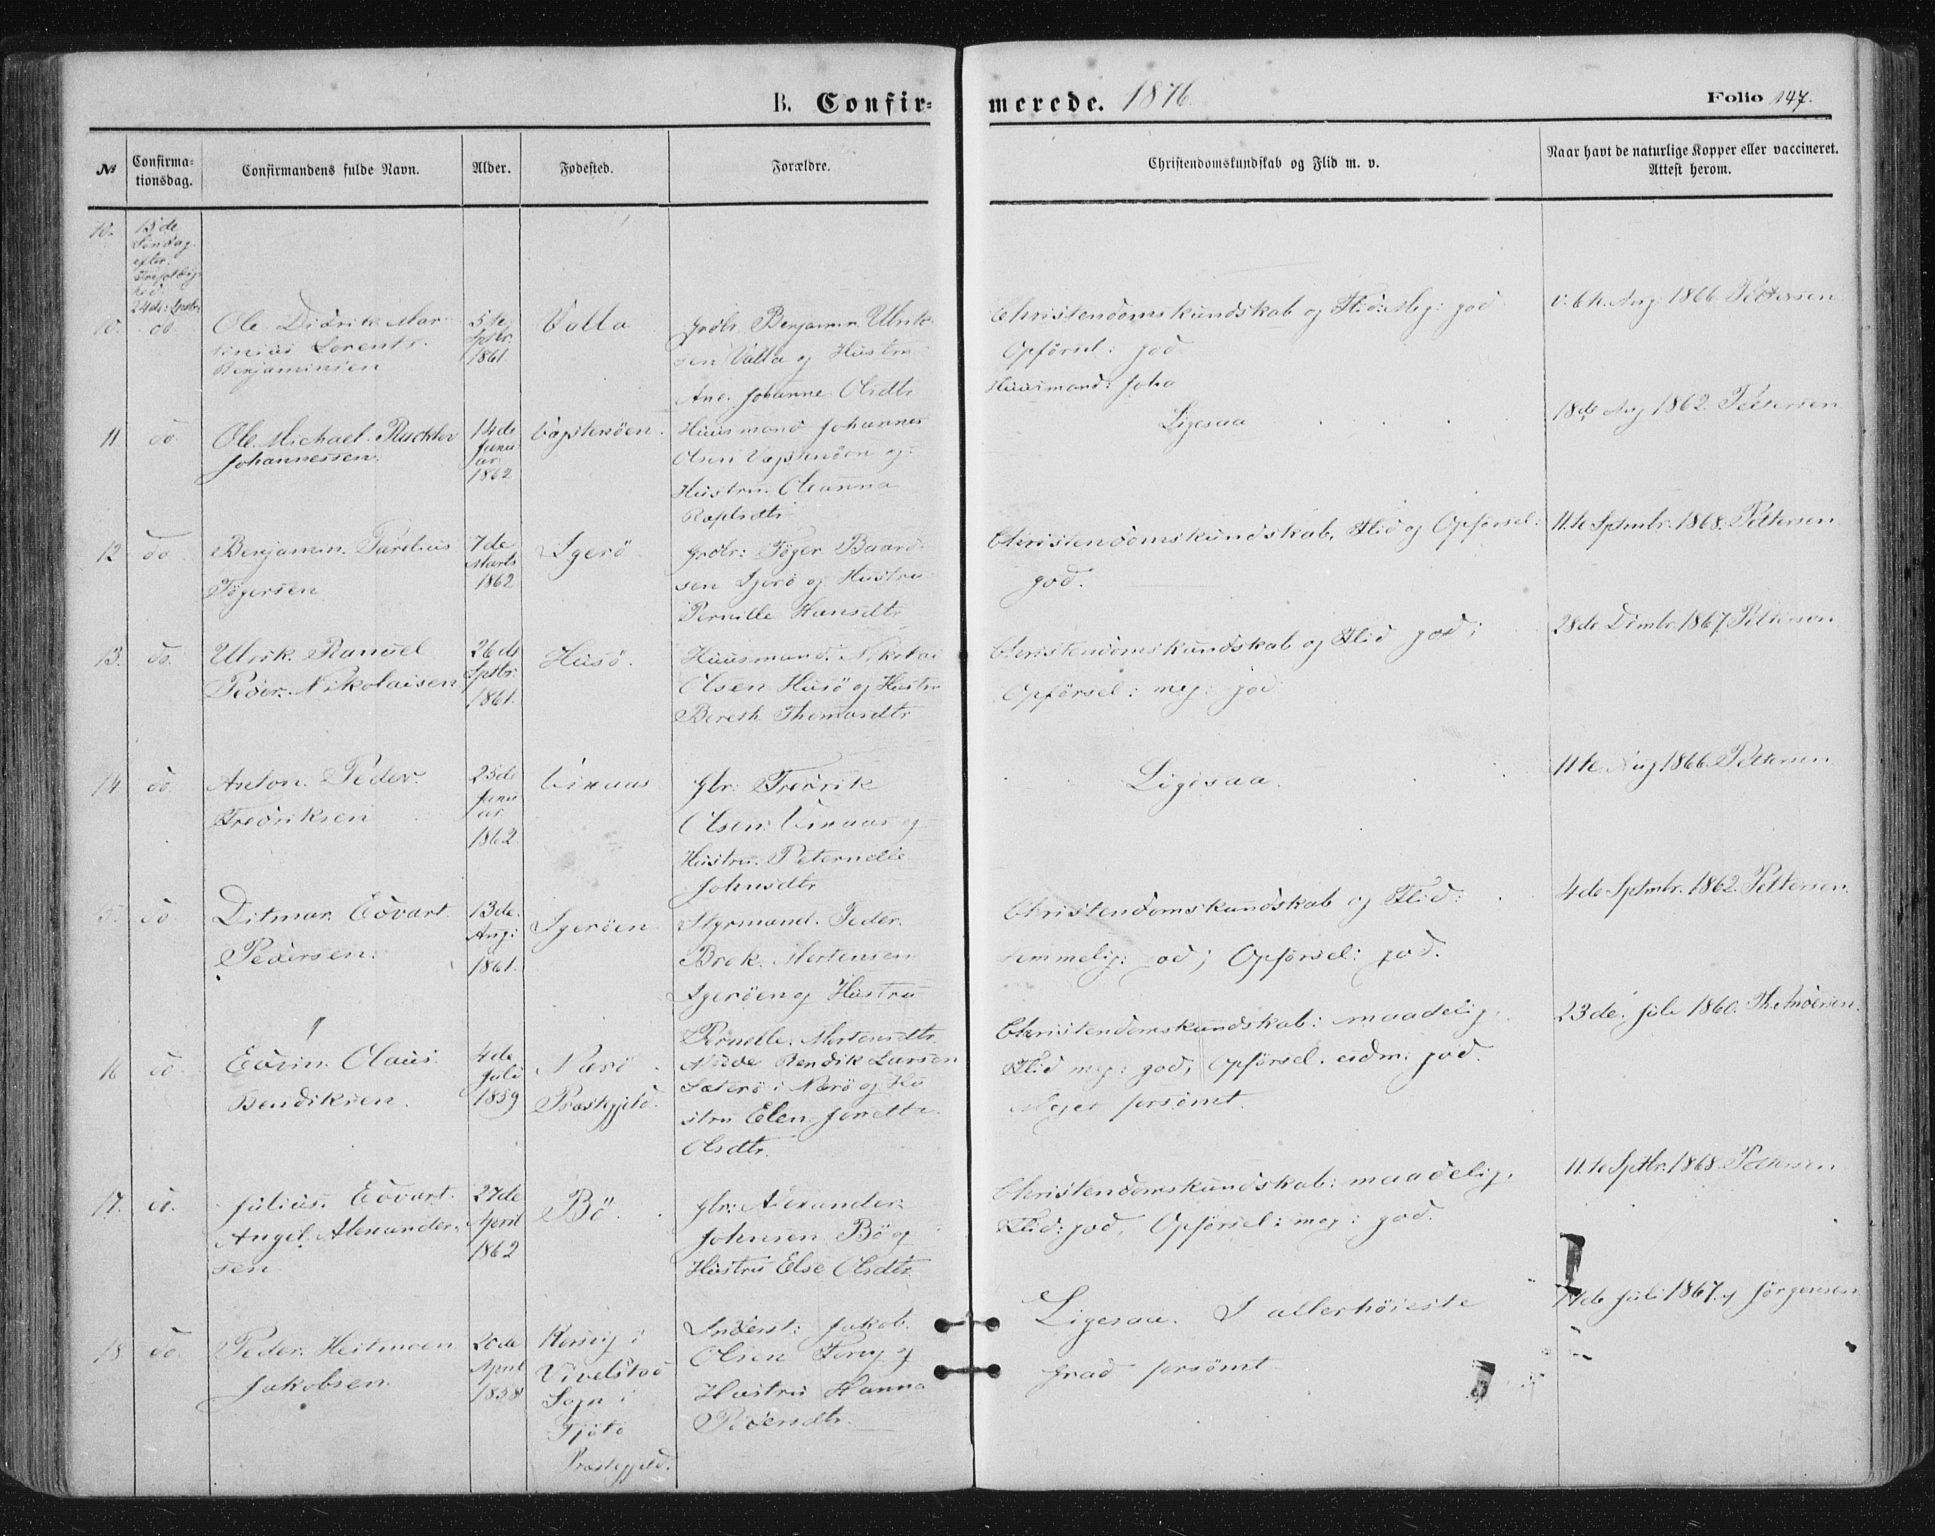 B. Confir= merede. 1876. Folio 147.
№ Confirma= tionsdag. Confirmandens fulde Navn. Alder. Fødested. Forældre. Christendomskundskab og Flid m. v. Naar havt de naturlige Kopper eller vaccineret. Attest herom.
10. 15de
Søndag
efter
24de Septbr
10. do. Ole Didrik Mar- 5te Valla Grdbr. Benjamin Ulrik- Christendomskundskab og Flid: Mg: god v. 6te Aug. 1866. Pettersen
tinius Lorents Septbr. sen Valla og Hustru Opførsel: god
Benjaminsen 1861. Ane Johanne Olsdtr. Huusmand: Joha
11. do. Ole Michael 14de Huusmand Johannes Ligesaa 18de Aug 1862. Pettersen
Johannessen. Janu- Olsen og
ar Hustru Oleanna
1862
12 do. Benjamin 7de Igerø Grdbr: Tøger Baard- Christendomskundskab, Flid og Opførsel: 11te Sptmbr. 1868. Pettersen
Tøgersen Marts sen Igerø og Hustru god.
1862 Pernille Hansdtr.
13. do. Ulrik 26de Husø. Huusmand Nikolai Christendomskundskab og Flid god; 28de Dcmbr. 1867. Pettersen
Peder Nikolaisen Sptbr. Olsen Husø og Hustru Opførsel: meg: god
1861. Bereth Thomasdtr.
14 do. Anton Peder 25de Gbr: Fredrik Ligesaa. 11te Aug 1866. Pettersen
Fredriksen Janu- Olsen og
ar Hustru Peternelle
1862 Johnsdtr
15. do. Ditmar Edvart 13de Igerøen Styrmand Peder Christendomskundskab og Flid: 4de Sptmbr. 1862. Pettersen
Pedersen. Aug: Brok Mortensen temmelig god; Opførsel: god.
1861. Igerøen og Hustru
Pernelle Mortensdtr.
16 do. Edvin Olaus 4de Nærø Bendik Larsen Christendomskundskab: maadelig. 23de Juli 1860. Th. Andersen.
Bendiksen. Juli Præstgjeld. i Nærø og Hu- Flid meg: god; Opførsel: god.
1859 stru Elen Olsdtr. Meget forsømt.
17. do. Julius Edvart 27de Bø. Gbr: Alexander Christendomskundskab: maadelig. 11te Sptbr. 1868. Pettersen
Angel Alexander- April Johnsen Bø og Flid: god, Opførsel: meg: god.
sen 1862 Hustru Else Olsdtr.
18 do. Peder Heitmoen 20de i Inderst: Jakob Ligesaa. I allerhøieste 17de Juli 1867. Jørgensen
Jakobsen. April Vivelstad Olsen og Grad forsømt
1858 Sogn i Hustru Hanna
Tjøtø Pedersdtr.
Præstegjeld.